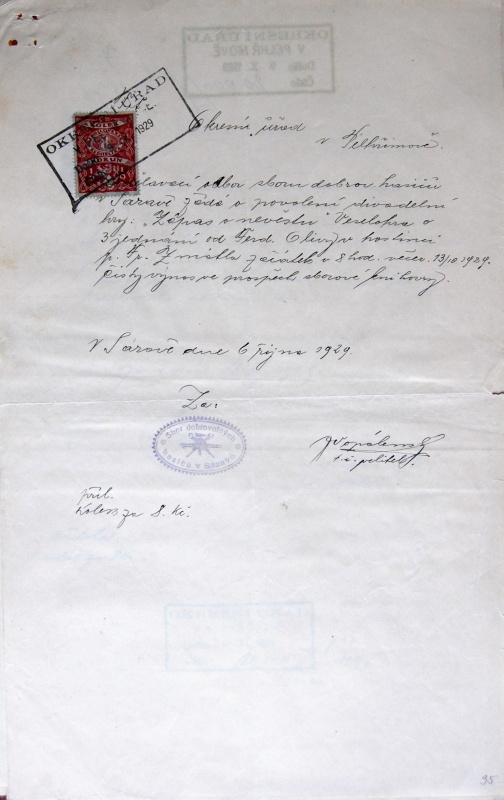 OKRESNÍ ÚŘAD
V PELHŘIMOVĚ
OKRESNÍ ÚŘAD
1929
KOLEK
Okresní úřad
v Pelhřimově.
odbor sboru dobrov. hasičů
v Sázavě žádá o povolení divadelní
hry: „Zápas o nevěstu" Veselohra o
3 jednání od Ferd. Olivy v hostinci
p. Fr. Zmátla začátek v 8 hod. večer. 13/10 1929.
Čistý výnos ve prospěch sborové knihovny.
V Sázavě dne 6 října 1929.
Za:
Sbor dobrovolných
hasičů v Sázavě
příl.
Kolek za 8. Kč.
35